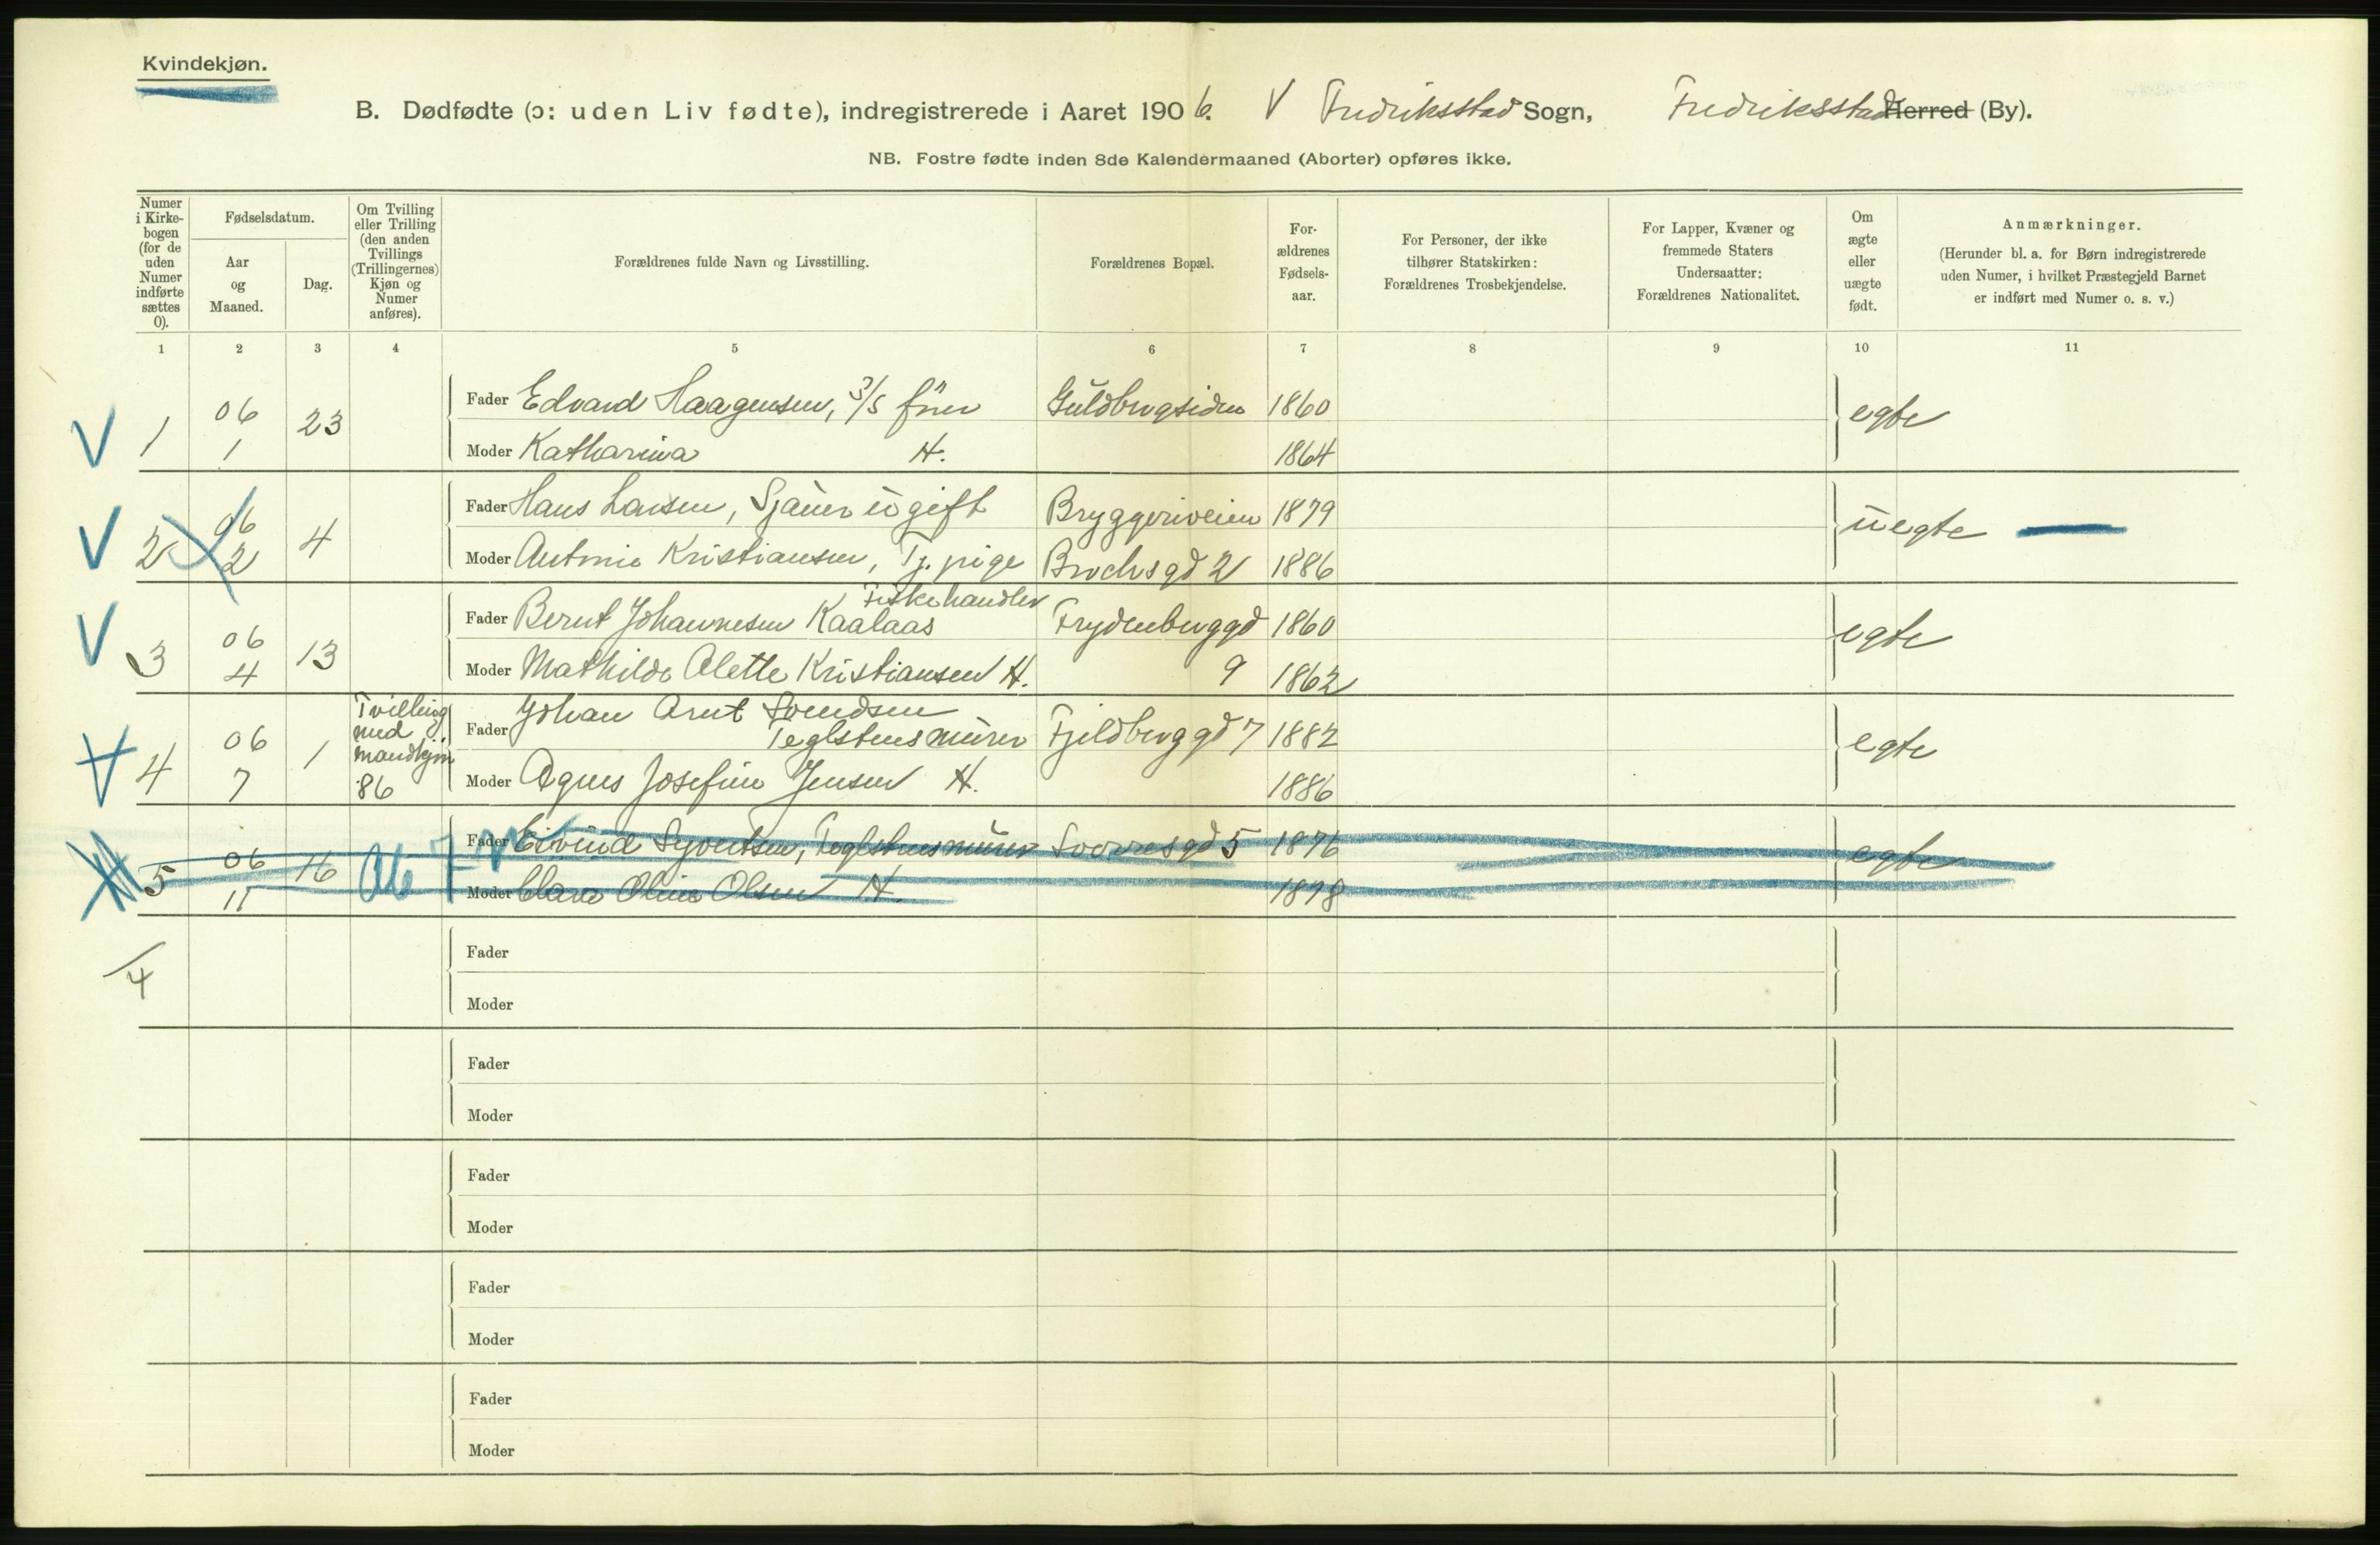 Kvindekjøn.
B. Dødfødte (ɔ: uden Liv fødte), indregistrerede i Aaret 1906. V Fredriksstad Sogn, Fredriksstad Herred (By).
NB. Fostre fødte inden 8de Kalendermaaned (Aborter) opføres ikke.
Numer i Kirke-bogen (for de uden Numer indførte sættes 0).
Fødselsdatum.
Aar og Maaned.
Dag.
Om Tvilling eller Trilling (den anden Tvillings (Trillingernes) Kjøn og Numer anføres).
Forældrenes fulde Navn og Livsstilling.
Forældrenes Bopæl.
For-ældrenes Fødsels-aar.
For Personer, der ikke tilhører Statskirken: Forældrenes Trosbekjendelse.
For Lapper, Kvæner og fremmede Staters Undersaatter: Forældrenes Nationalitet.
Om ægte eller uægte født.
Anmærkninger.
(Herunder bl. a. for Børn indregistrerede uden Numer, i hvilket Præstegjeld Barnet er indført med Numer o. s. v.)
1 2 3 4 5 6 7 8 9 10 11
V 1 06 1 23 Fader Edvard Haagensen, S/S fører 1860 egte
Moder Katharina H. 1864
V 2 06 2 4 Fader Hans Larsen, Sjauer ugift Bryggeriveien 1879 uegte
Moder Antonie Kristiansen, Tj. pige Brochsgd 2 1886
V 3 06 4 13 Fader Bernt Johannesen Kaalaas Fiskehandler Frydenberggd 9 1860 egte
Moder Mathilde Alette Kristiansen H. 1862
V 4 06 7 1 Tvilling med mandkjøn 86 Fader Johan Arnt Svendsen Teglstensmurer Fjeldberggd 7 1882 egte
Moder Agnes Josefine Jensen H. 1886
5 06 11 16 Ab 7 m Fader Eivind Syvertsen, Teglstensmurer 5 1876 egte
Moder Clara Oline Olsen H. 1878
4
Fader
Moder
Fader
Moder
Fader
Moder
Fader
Moder
Fader
Moder